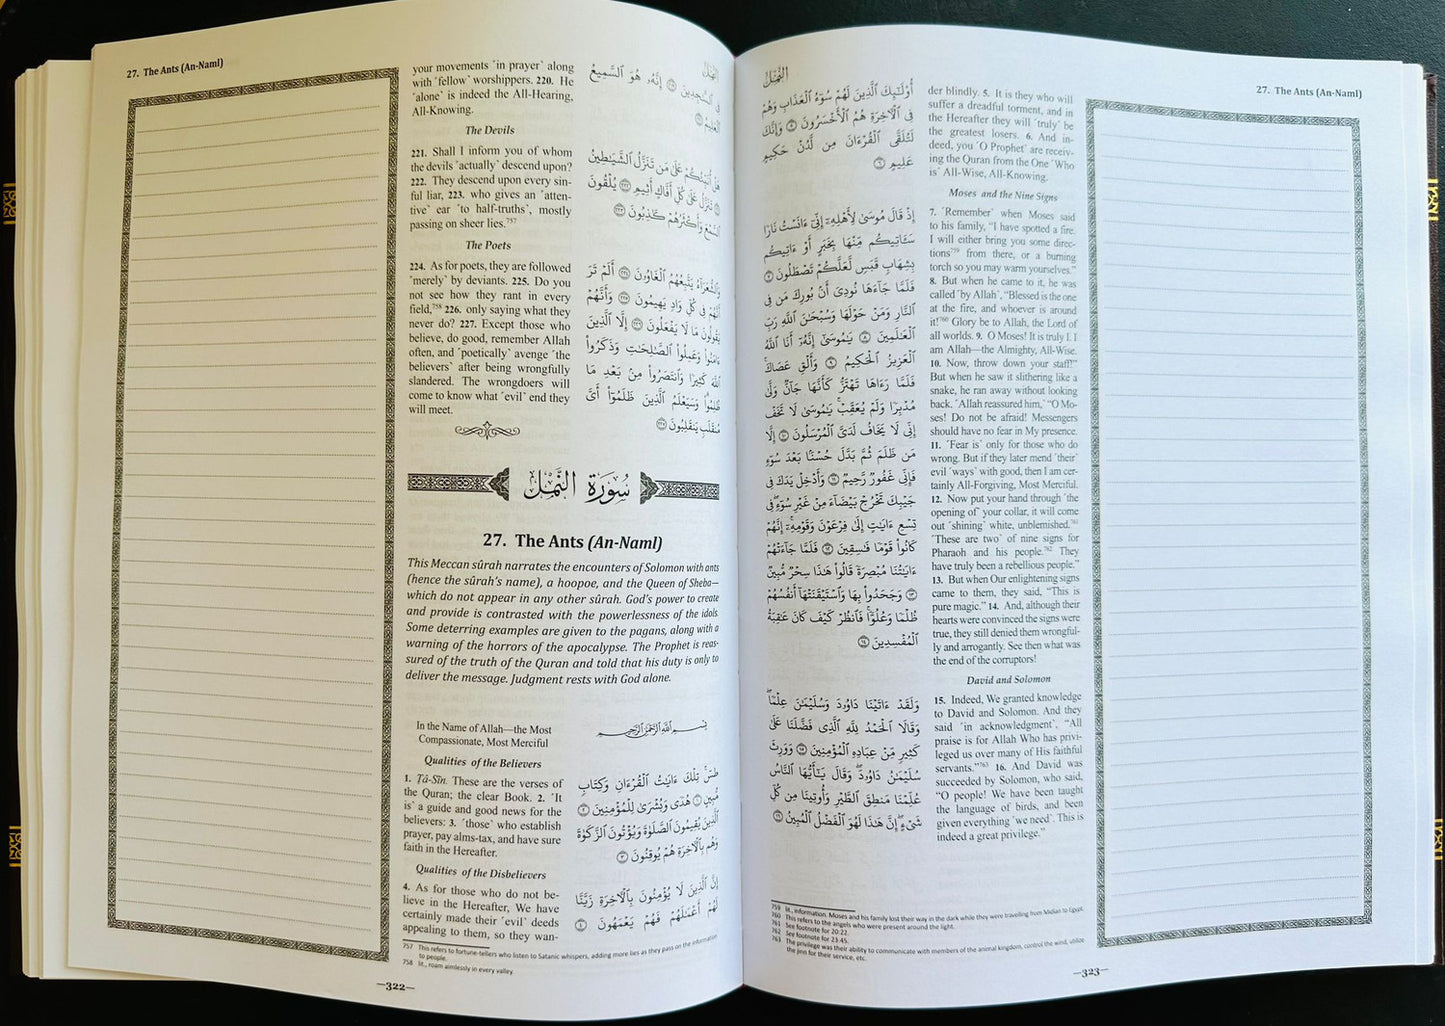 27. The Ants (An-Naml)
your movements ˹in prayer˺ along
with ˹fellow˺ worshippers. 220. He
˹alone˺ is indeed the All-Hearing,
All-Knowing.
The Devils
221. Shall I inform you of whom
the devils ˹actually˺ descend upon?
222. They descend upon every sin-
ful liar, 223. who gives an ˹atten-
tive˺ ear ˹to half-truths˺, mostly
passing on sheer lies.757
The Poets
224. As for poets, they are followed
˹merely˺ by deviants. 225. Do you
not see how they rant in every
field,758 226. only saying what they
never do? 227. Except those who
believe, do good, remember Allah
often, and ˹poetically˺ avenge ˹the
believers˺ after being wrongfully
slandered. The wrongdoers will
come to know what ˹evil˺ end they
will meet.
فِي ٱلسَّـٰجِدِينَ ٢١٩ إِنَّهُۥ هُوَ ٱلسَّمِيعُ
ٱلْعَلِيمُ ٢٢٠
هَلْ أُنَبِّئُكُمْ عَلَىٰ مَن تَنَزَّلُ ٱلشَّيَـٰطِينُ
٢٢١ تَنَزَّلُ عَلَىٰ كُلِّ أَفَّاكٍ أَثِيمٍ ٢٢٢ يُلْقُونَ
ٱلسَّمْعَ وَأَكْثَرُهُمْ كَـٰذِبُونَ ٢٢٣
وَٱلشُّعَرَآءُ يَتَّبِعُهُمُ ٱلْغَاوُۥنَ ٢٢٤ أَلَمْ تَرَ
أَنَّهُمْ فِي كُلِّ وَادٍ يَهِيمُونَ ٢٢٥ وَأَنَّهُمْ
يَقُولُونَ مَا لَا يَفْعَلُونَ ٢٢٦ إِلَّا ٱلَّذِينَ
ءَامَنُوا۟ وَعَمِلُوا۟ ٱلصَّـٰلِحَـٰتِ وَذَكَرُوا۟
ٱللَّهَ كَثِيرًا وَٱنتَصَرُوا۟ مِنۢ بَعْدِ مَا
ظُلِمُوا۟ وَسَيَعْلَمُ ٱلَّذِينَ ظَلَمُوٓا۟ أَىَّ
مُنقَلَبٍ يَنقَلِبُونَ ٢٢٧
سُورَةُ النَّمْل
27. The Ants (An-Naml)
This Meccan sûrah narrates the encounters of Solomon with ants
(hence the sûrah’s name), a hoopoe, and the Queen of Sheba—
which do not appear in any other sûrah. God’s power to create
and provide is contrasted with the powerlessness of the idols.
Some deterring examples are given to the pagans, along with a
warning of the horrors of the apocalypse. The Prophet is reas-
sured of the truth of the Quran and told that his duty is only to
deliver the message. Judgment rests with God alone.
In the Name of Allah—the Most
Compassionate, Most Merciful
Qualities of the Believers
1. Ṭâ-Sĩn. These are the verses of
the Quran; the clear Book. 2. ˹It
is˺ a guide and good news for the
believers: 3. ˹those˺ who establish
prayer, pay alms-tax, and have sure
faith in the Hereafter.
Qualities of the Disbelievers
4. As for those who do not be-
lieve in the Hereafter, We have
certainly made their ˹evil˺ deeds
appealing to them, so they wan-
بِسْمِ ٱللَّهِ ٱلرَّحْمَـٰنِ ٱلرَّحِيمِ
طسٓ تِلْكَ ءَايَـٰتُ ٱلْقُرْءَانِ وَكِتَابٍ
مُّبِينٍ ١ هُدًى وَبُشْرَىٰ لِلْمُؤْمِنِينَ ٢
ٱلَّذِينَ يُقِيمُونَ ٱلصَّلَوٰةَ وَيُؤْتُونَ ٱلزَّكَوٰةَ
وَهُم بِٱلْـَٔاخِرَةِ هُمْ يُوقِنُونَ ٣
إِنَّ ٱلَّذِينَ لَا يُؤْمِنُونَ بِٱلْـَٔاخِرَةِ زَيَّنَّا
لَهُمْ أَعْمَـٰلَهُمْ فَهُمْ يَعْمَهُونَ ٤
757 This refers to fortune-tellers who listen to Satanic whispers, adding more lies as they pass on the information
to people.
758 lit., roam aimlessly in every valley.
—322—
النَّمْل
27. The Ants (An-Naml)
أُو۟لَـٰٓئِكَ ٱلَّذِينَ لَهُمْ سُوٓءُ ٱلْعَذَابِ وَهُمْ
فِي ٱلْـَٔاخِرَةِ هُمُ ٱلْأَخْسَرُونَ ٥ وَإِنَّكَ
لَتُلَقَّى ٱلْقُرْءَانَ مِن لَّدُنْ حَكِيمٍ
عَلِيمٍ ٦
إِذْ قَالَ مُوسَىٰ لِأَهْلِهِۦٓ إِنِّىٓ ءَانَسْتُ نَارًا
سَـَٔاتِيكُم مِّنْهَا بِخَبَرٍ أَوْ ءَاتِيكُم
بِشِهَابٍ قَبَسٍ لَّعَلَّكُمْ تَصْطَلُونَ ٧
فَلَمَّا جَآءَهَا نُودِىَ أَنۢ بُورِكَ مَن فِي
ٱلنَّارِ وَمَنْ حَوْلَهَا وَسُبْحَـٰنَ ٱللَّهِ رَبِّ
ٱلْعَـٰلَمِينَ ٨ يَـٰمُوسَىٰٓ إِنَّهُۥٓ أَنَا ٱللَّهُ
ٱلْعَزِيزُ ٱلْحَكِيمُ ٩ وَأَلْقِ عَصَاكَ
فَلَمَّا رَءَاهَا تَهْتَزُّ كَأَنَّهَا جَآنٌّ وَلَّىٰ
مُدْبِرًا وَلَمْ يُعَقِّبْ يَـٰمُوسَىٰ لَا تَخَفْ
إِنِّى لَا يَخَافُ لَدَىَّ ٱلْمُرْسَلُونَ ١٠ إِلَّا
مَن ظَلَمَ ثُمَّ بَدَّلَ حُسْنًۢا بَعْدَ سُوٓءٍ
فَإِنِّى غَفُورٌ رَّحِيمٌ ١١ وَأَدْخِلْ يَدَكَ فِي
جَيْبِكَ تَخْرُجْ بَيْضَآءَ مِنْ غَيْرِ سُوٓءٍ فِي
تِسْعِ ءَايَـٰتٍ إِلَىٰ فِرْعَوْنَ وَقَوْمِهِۦٓ إِنَّهُمْ
كَانُوا۟ قَوْمًا فَـٰسِقِينَ ١٢ فَلَمَّا جَآءَتْهُمْ
ءَايَـٰتُنَا مُبْصِرَةً قَالُوا۟ هَـٰذَا سِحْرٌ مُّبِينٌ
١٣ وَجَحَدُوا۟ بِهَا وَٱسْتَيْقَنَتْهَآ أَنفُسُهُمْ
ظُلْمًا وَعُلُوًّا فَٱنظُرْ كَيْفَ كَانَ عَـٰقِبَةُ
ٱلْمُفْسِدِينَ ١٤
وَلَقَدْ ءَاتَيْنَا دَاوُۥدَ وَسُلَيْمَـٰنَ عِلْمًا
وَقَالَا ٱلْحَمْدُ لِلَّهِ ٱلَّذِى فَضَّلَنَا عَلَىٰ
كَثِيرٍ مِّنْ عِبَادِهِ ٱلْمُؤْمِنِينَ ١٥ وَوَرِثَ
سُلَيْمَـٰنُ دَاوُۥدَ وَقَالَ يَـٰٓأَيُّهَا ٱلنَّاسُ
عُلِّمْنَا مَنطِقَ ٱلطَّيْرِ وَأُوتِينَا مِن كُلِّ
شَىْءٍ إِنَّ هَـٰذَا لَهُوَ ٱلْفَضْلُ ٱلْمُبِينُ ١٦
der blindly. 5. It is they who will
suffer a dreadful torment, and in
the Hereafter they will ˹truly˺ be
the greatest losers. 6. And in-
deed, you ˹O Prophet˺ are receiv-
ing the Quran from the One ˹Who
is˺ All-Wise, All-Knowing.
Moses and the Nine Signs
7. ˹Remember˺ when Moses said
to his family, “I have spotted a fire.
I will either bring you some direc-
tions759 from there, or a burning
torch so you may warm yourselves.”
8. But when he came to it, he was
called ˹by Allah˺, “Blessed is the one
at the fire, and whoever is around
it!760 Glory be to Allah, the Lord of
all worlds. 9. O Moses! It is truly I. I
am Allah—the Almighty, All-Wise.
10. Now, throw down your staff!”
But when he saw it slithering like a
snake, he ran away without looking
back. ˹Allah reassured him,˺ “O Mo-
ses! Do not be afraid! Messengers
should have no fear in My presence.
11. ˹Fear is˺ only for those who do
wrong. But if they later mend ˹their˺
evil ˹ways˺ with good, then I am cer-
tainly All-Forgiving, Most Merciful.
12. Now put your hand through ˹the
opening of˺ your collar, it will come
out ˹shining˺ white, unblemished.761
˹These are two˺ of nine signs for
Pharaoh and his people.762 They
have truly been a rebellious people.”
13. But when Our enlightening signs
came to them, they said, “This is
pure magic.” 14. And, although their
hearts were convinced the signs were
true, they still denied them wrongful-
ly and arrogantly. See then what was
the end of the corruptors!
David and Solomon
15. Indeed, We granted knowledge
to David and Solomon. And they
said ˹in acknowledgment˺, “All
praise is for Allah Who has privi-
leged us over many of His faithful
servants.”763 16. And David was
succeeded by Solomon, who said,
“O people! We have been taught
the language of birds, and been
given everything ˹we need˺. This is
indeed a great privilege.”
759 lit., information. Moses and his family lost their way in the dark while they were travelling from Midian to Egypt.
760 This refers to the angels who were present around the light.
761 See footnote for 20:22.
762 See footnote for 23:45.
763 The privilege was their ability to communicate with members of the animal kingdom, control the wind, utilize
the jinn for their service, etc.
—323—